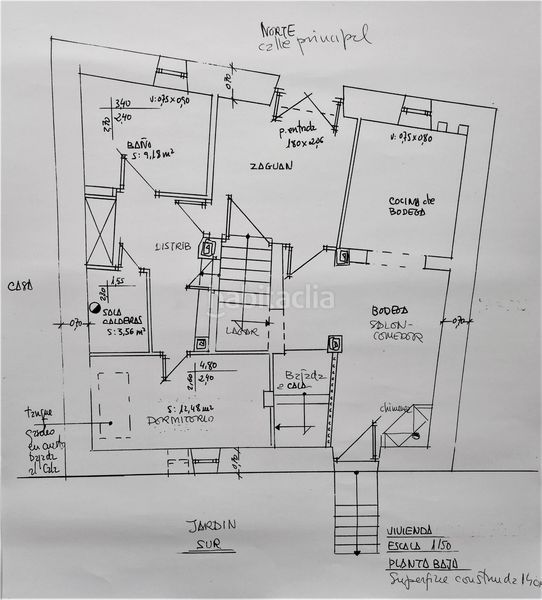 NORTE
calle principal
0,70
V: 0,75 x 0,90
3,40
2,70
2,40
BAÑO
S: 9,18 m²
p. entrada
180 x 2,05
V: 0,75 x 0,80
ZAGUAN
COCINA de
BODEGA
DISTRIB
CASA
1,55
2,20
SALA
CALDERAS
S: 3,56 m²
habitaclia
LAGAR
BODEGA
SALON-
COMEDOR
0,70
0,70
4,80
2,60
2,40
Bajada
a CALA
S: 12,48 m²
DORMITORIO
chimenea
tanque
gasoleo
0,70
JARDIN
SUR
VIVIENDA
ESCALA 1/50
PLANTA BAJA
Superficie construida 140